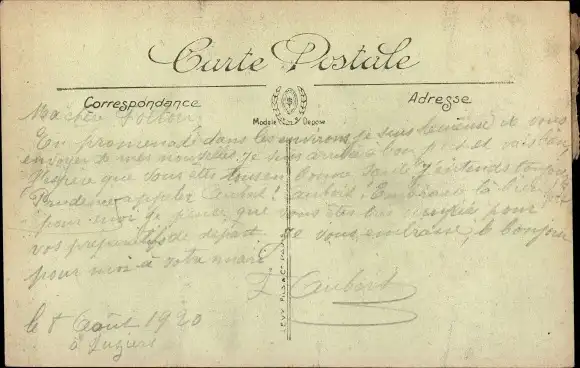 Carte Postale
Correspondance
Adresse
Modèle Déposé
Ma chère
En promenade dans les environs je suis heureuse de vous
envoyer de mes nouvelles, je suis arrivée à bon port et vais bien
J'espère que vous êtes tous en bonne santé J'entends toujours
appeler Aubert! Aubert! Embrassez
pour moi je pense que vous êtes bien occupée pour
vos préparatifs de départ. Je vous embrasse, le bonjour
pour moi à votre mari
Aubert
le 8 Août 1920
à
LEVY FILS & Cie PARIS